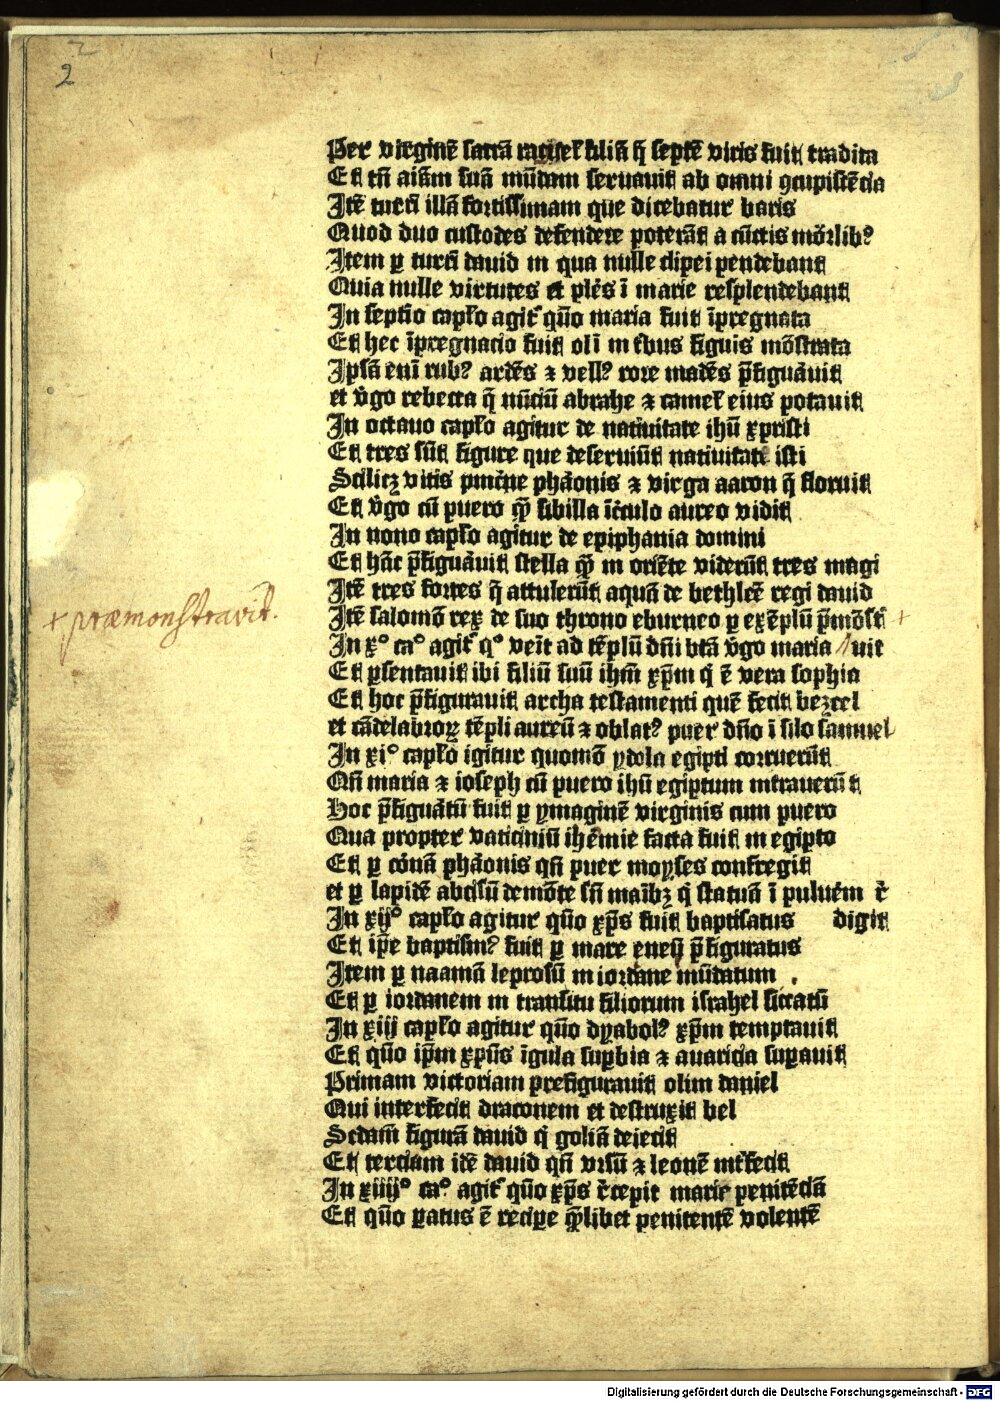 2
2
Per virginē sarrā raguel' filiā q̄ septē viris fuit tradita
Et tn̄ aiām suā mūdam seruauit ab omni ꝯcupistēcia
Itē turrī illā fortissimam que dicebatur baris
Quod duo custodes defendere poterāt a cūctis mōrlibꝰ
Item ꝑ turrī dauid in qua mille clipei pendebant
Quia mille virtutes et plēs ī marie resplendebant
In septīo capl'o agit' quō maria fuit īpregnata
Et hec īpregnacio fuit olī in t'bus figuis mōstrata
Ipsā enī rubꝰ ardēs ⁊ vellꝰ rore madēs p̄figuāuit
et v̄go rebecca q̄ nūciū abrahe ⁊ camel' eius potauit
In octauo capl'o agitur de natiuitate ihū xpristi
Et tres sūt figure que deseruiūt natiuitati isti
Scilicꝫ vitis pinc̄ne phāonis ⁊ virga aaron q̄ floruit
Et v̄go cū puero q̄ꝫ sibilla īc̄culo aureo vidit
In nono capl'o agitur de epiphania domini
Et hāc p̄figuāuit stella q̄ꝫ in oriēte viderūt tres magi
Itē tres fortes q̄ attulerūt aquā de bethleē regi dauid
Itē salomō rex de suo throno eburneo ꝑ exēplū p̄mōst' +
+ præmonstravit.
In xº caº agit' qº veīt ad tēplū dn̄i btā v̄go maria uit
Et p̄sentauit ibi filiū suū ihm̄ xp̄m q̄ ē vera sophia
Et hoc p̄figurauit archa testamenti quē fecit bezeel
et cādelabroꝝ tēpli aureū ⁊ oblatꝰ puer dn̄o ī silo samuel
In xiº capl'o igitur quomō ydola egipti corruerūt
Qn̄ maria ⁊ ioseph cū puero ihū egiptum intrauerūt
Hoc p̄figuātū fuit ꝑ ymaginē virginis cum puero
Qua propter vaticiniū ihēmie facta fuit in egipto
Et ꝑ cōnā phāonis qn̄ puer moyses confregit
et ꝑ lapidē abcisū demōte sn̄ maībꝫ q̄ statuā ī puluēm r̄
In xijº capl'o agitur quō xp̄s fuit baptisatus digit
Et ip̄e baptismꝰ fuit ꝑ mare eneū p̄figuratus
Item ꝑ naamā leprosū in iordane mūdatum .
Et ꝑ iordanem in transitu filiorum israhel siccatū
In xiij capl'o agitur quō dyabolꝰ xp̄m temptauit
Et quō ip̄m xp̄us īgula suꝑbia ⁊ auaricia suꝑauit
Primam victoriam prefigurauit olim daniel
Qui interfecit draconem et destruxit bel
Scdam̄ figurā dauid q̄ goliā deiecit
Et terciam idē dauid qn̄ vrsū ⁊ leonē int'fecit
In xiiijº caº agit' quō xp̄s r̄cepit marie penitēciā
Et quō ꝑatus ē recipe q̄ꝫlibet penitentē volentē
Digitalisierung gefördert durch die Deutsche Forschungsgemeinschaft - DFG